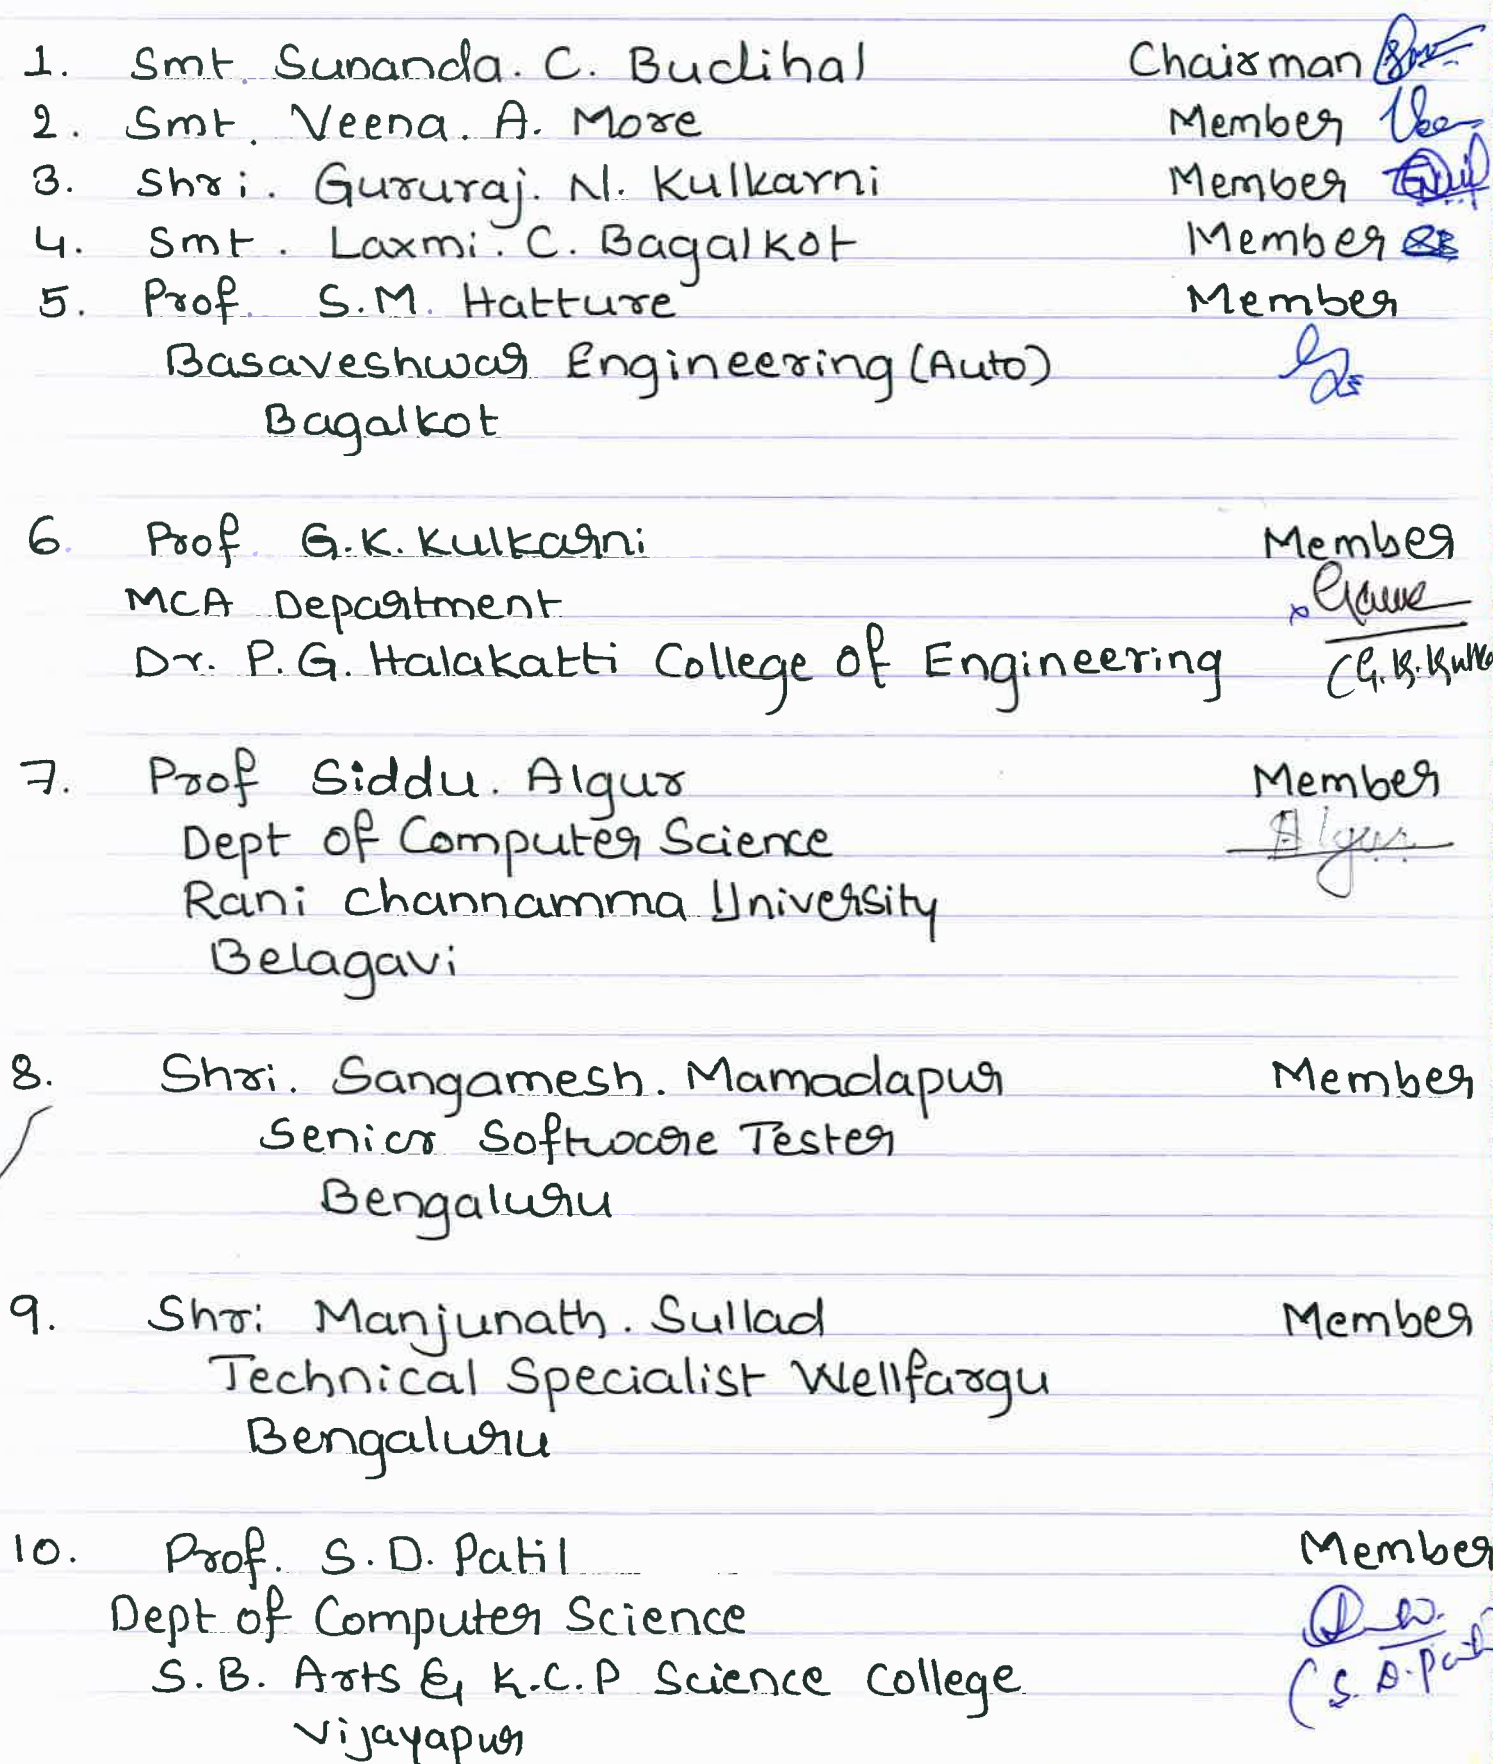 1. Smt. Sunanda. C. Budihal Chairman
2. Smt. Veena. A. More Member
3. Shri. Gururaj. N. Kulkarni Member
4. Smt. Laxmi. C. Bagalkot Member
5. Prof. S.M. Hatture Member
Basaveshwar Engineering (Auto)
Bagalkot
6. Prof. G.K. Kulkarni Member
MCA Department
Dr. P.G. Halakatti College of Engineering (G.K. Kulka
7. Prof Siddu. Algur Member
Dept of Computer Science Algur
Rani Channamma University
Belagavi
8. Shri. Sangamesh. Mamadapur Member
Senior Software Tester
Bengaluru
9. Shri Manjunath. Sullad Member
Technical Specialist Wellfargu
Bengaluru
10. Prof. S.D. Patil Member
Dept of Computer Science
S.B. Arts & K.C.P Science College (S. D. Pati
Vijayapur